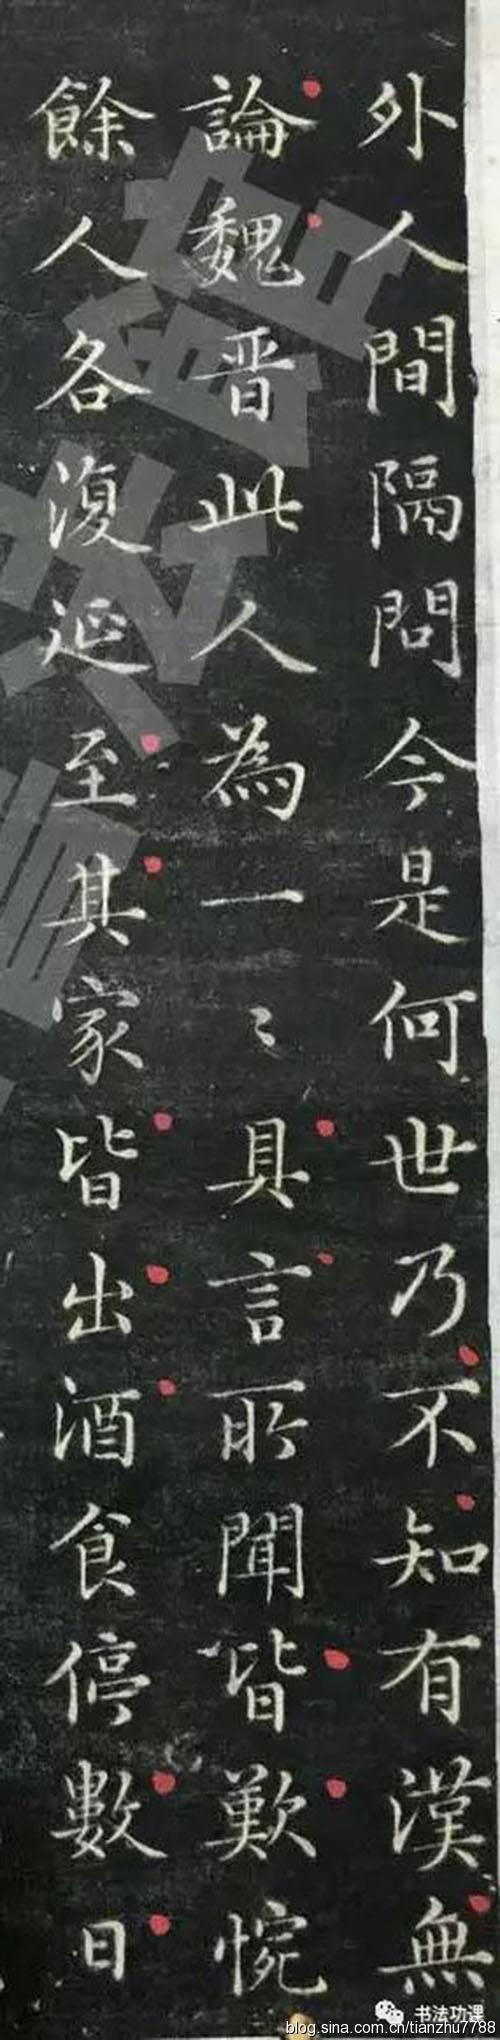 外人間隔問今是何世乃不知有漢無
論魏晋此人為一〻具言所聞皆歎惋
餘人各復延至其家皆出酒食停數日
书法功课
blog.sina.com.cn/tianzhu7788